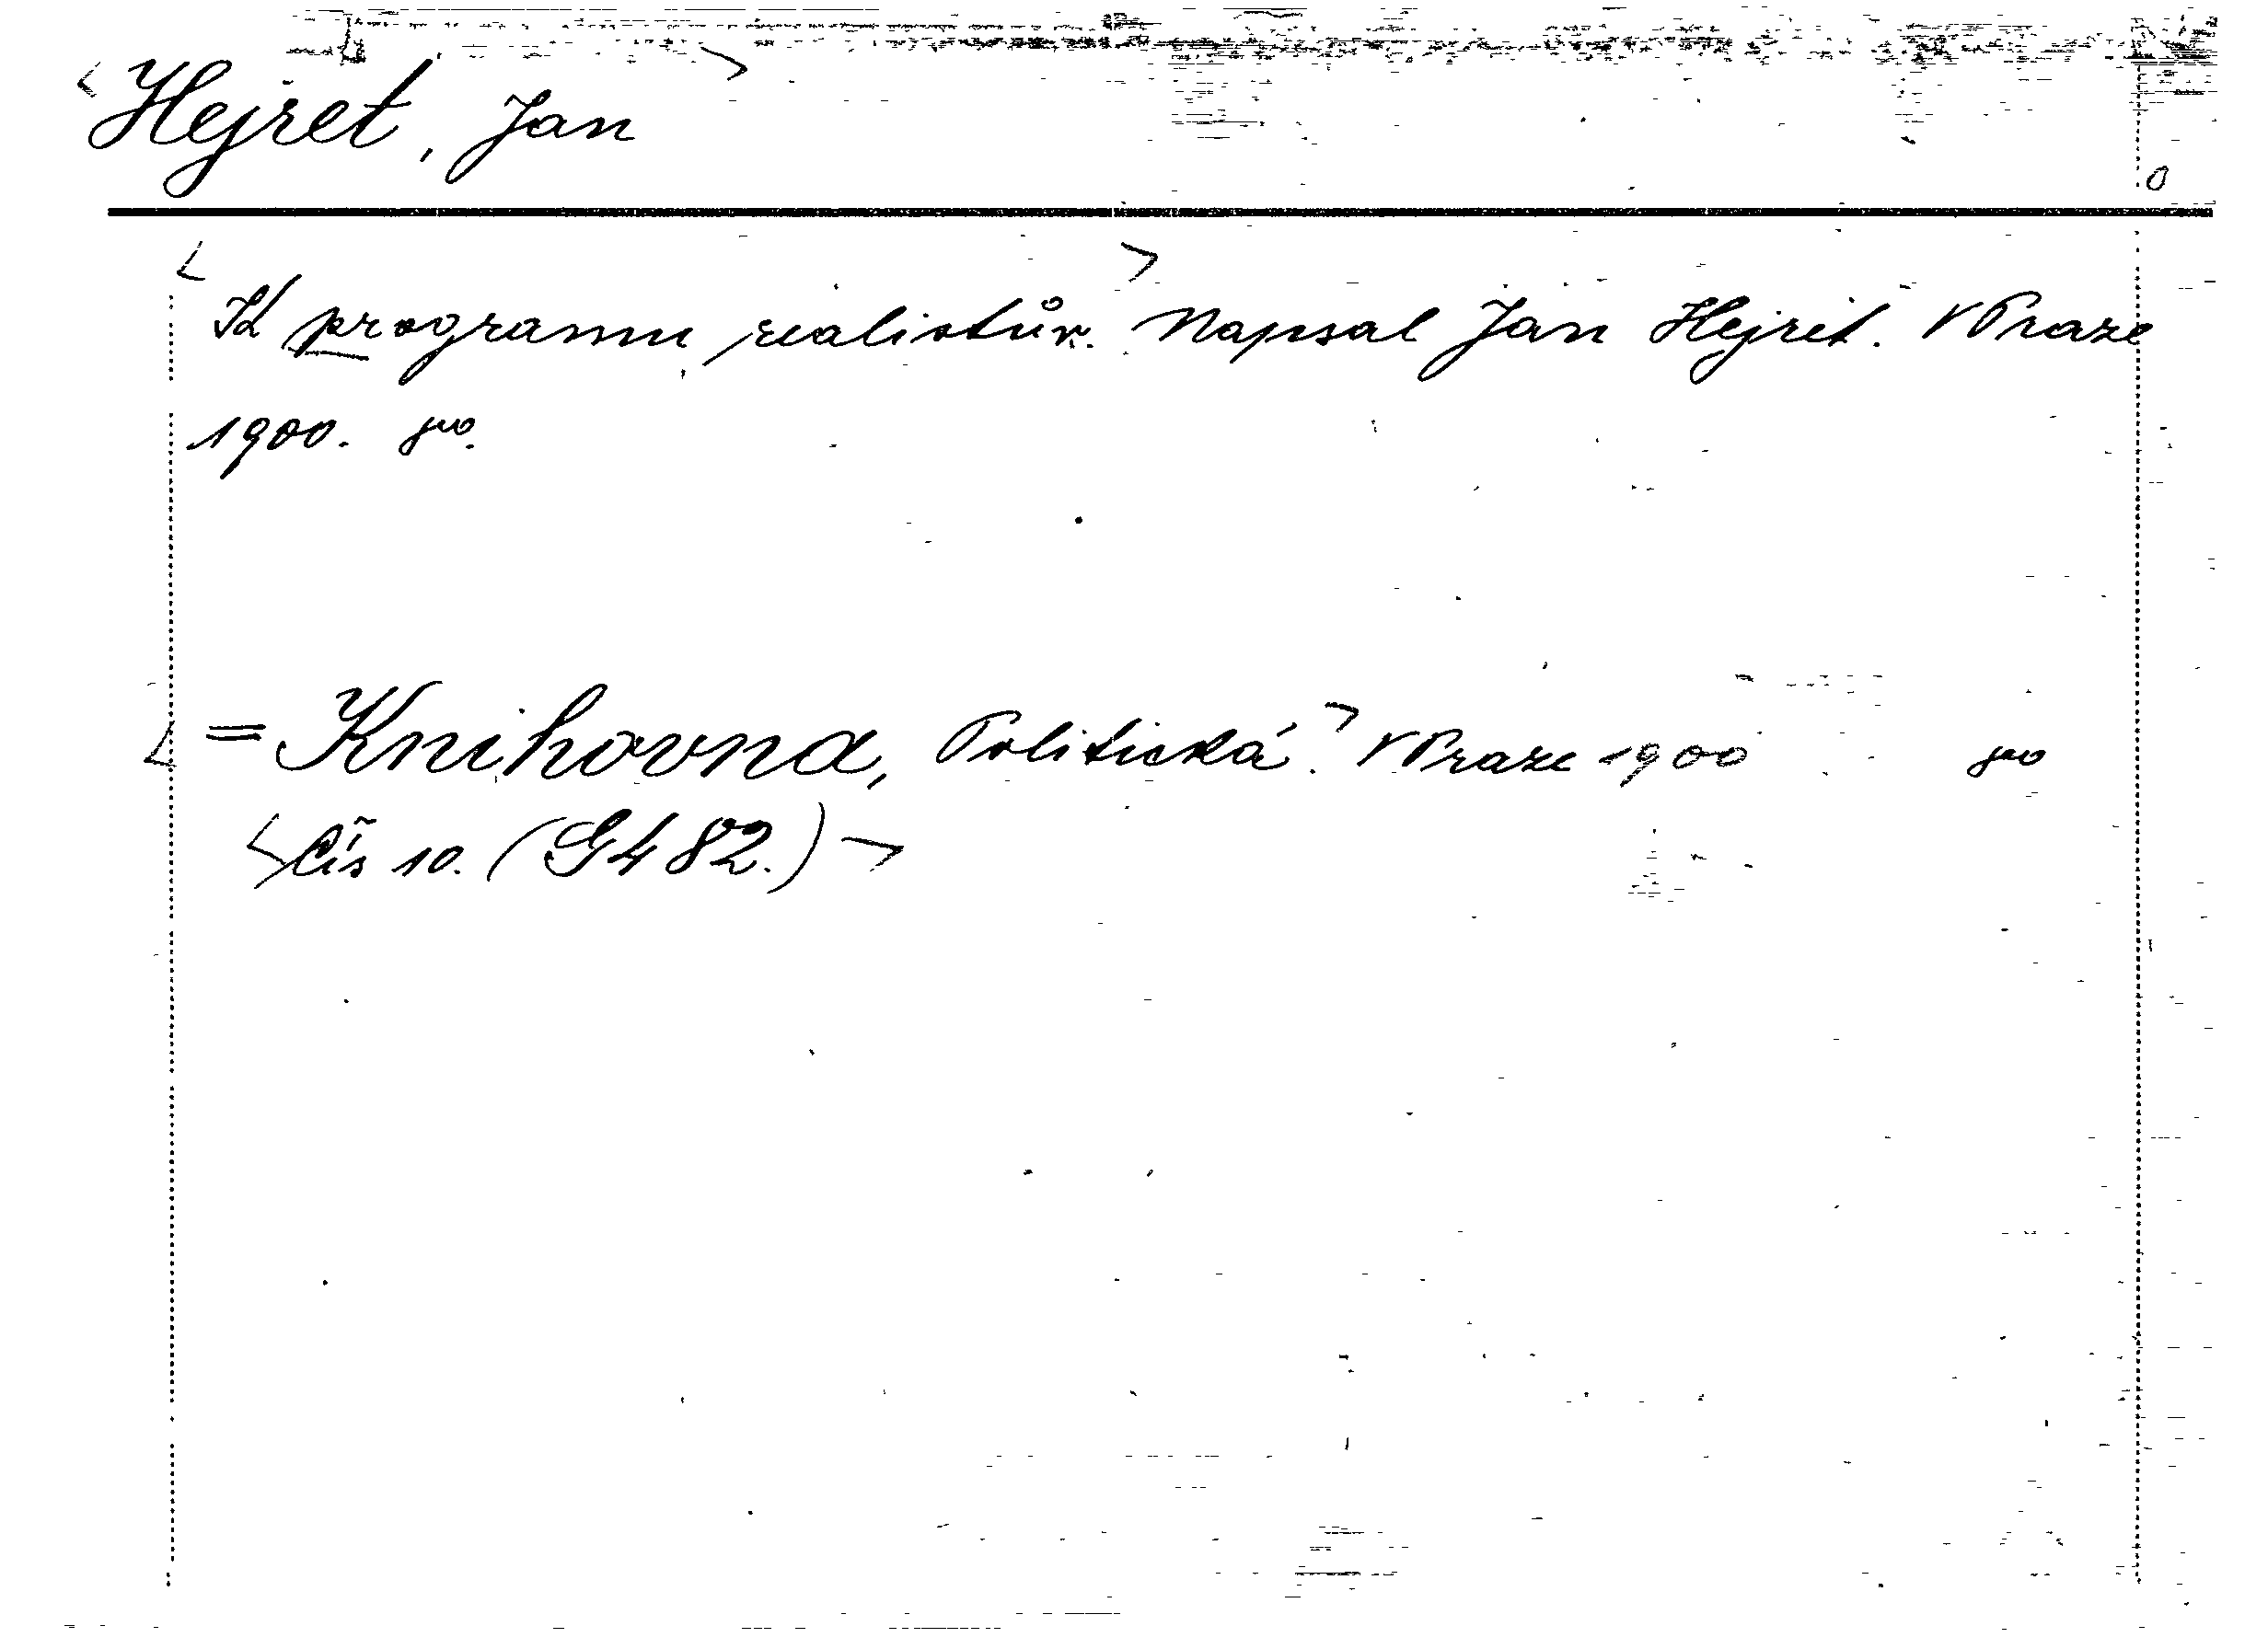 Hejret, Jan
K programu realistův. Napsal Jan Hejret. V Praze
1900. 8vo.
= Knihovna, Politická. V Praze 1900 8vo
Čís 10. (G482.)